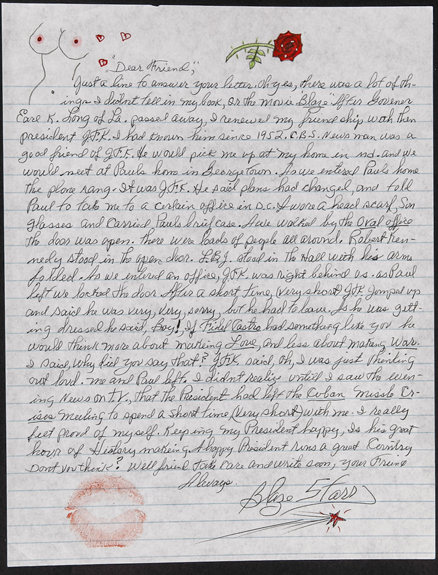 "Dear Friend",
Just a line to answer your letter. Oh yes, there was a lot of th-
ings I didn't tell in my book, or the movie Blaze. After Govener
Earl K. Long of La. passed away, I renewed my friend ship with then
president J.F.K. I had known him since 1952. C.B.S. News man was a
good friend of J.F.K. He would pick me up at my home in md. and we
would meet at Pauls home in Georgetown. As we entered Pauls home
the phone rang. It was J.F.K. He said plans had changed, and told
Paul to take me to a certain office in D.C. I wore a head scarf, Sun
Glasses and Carried Pauls brief case. As we walked by the Oval office
the door was open. there were loads of people all around. Robert Ken-
nedy stood in the open door. L.B.J. stood in the Hall with his arms
folded. As we entered an office, J.F.K. was right behind us. as Paul
left we locked the door. After a short time, (very short) J.F.K. Jumped up
and said he was very, very, sorry, but he had to leave. As he was gett-
ing dressed he said, Boy! If Fidel Castro had something like you he
would think more about making Love, and less about making War.
I said, Why did you say that? J.F.K. said, Oh, I was just thinking
out loud. me and Paul left. I didn't realize until I saw the even-
ing News on T.V., that the President had left the Cuban missle Cr-
ises Meeting to spend a short time (very short) with me. I really
feel proud of myself. Keeping my President happy, in his great
hour of History making. A happy President runs a great Country
Don't you think? Well friend take care and write soon, your Friend
Always
Blaze Starr